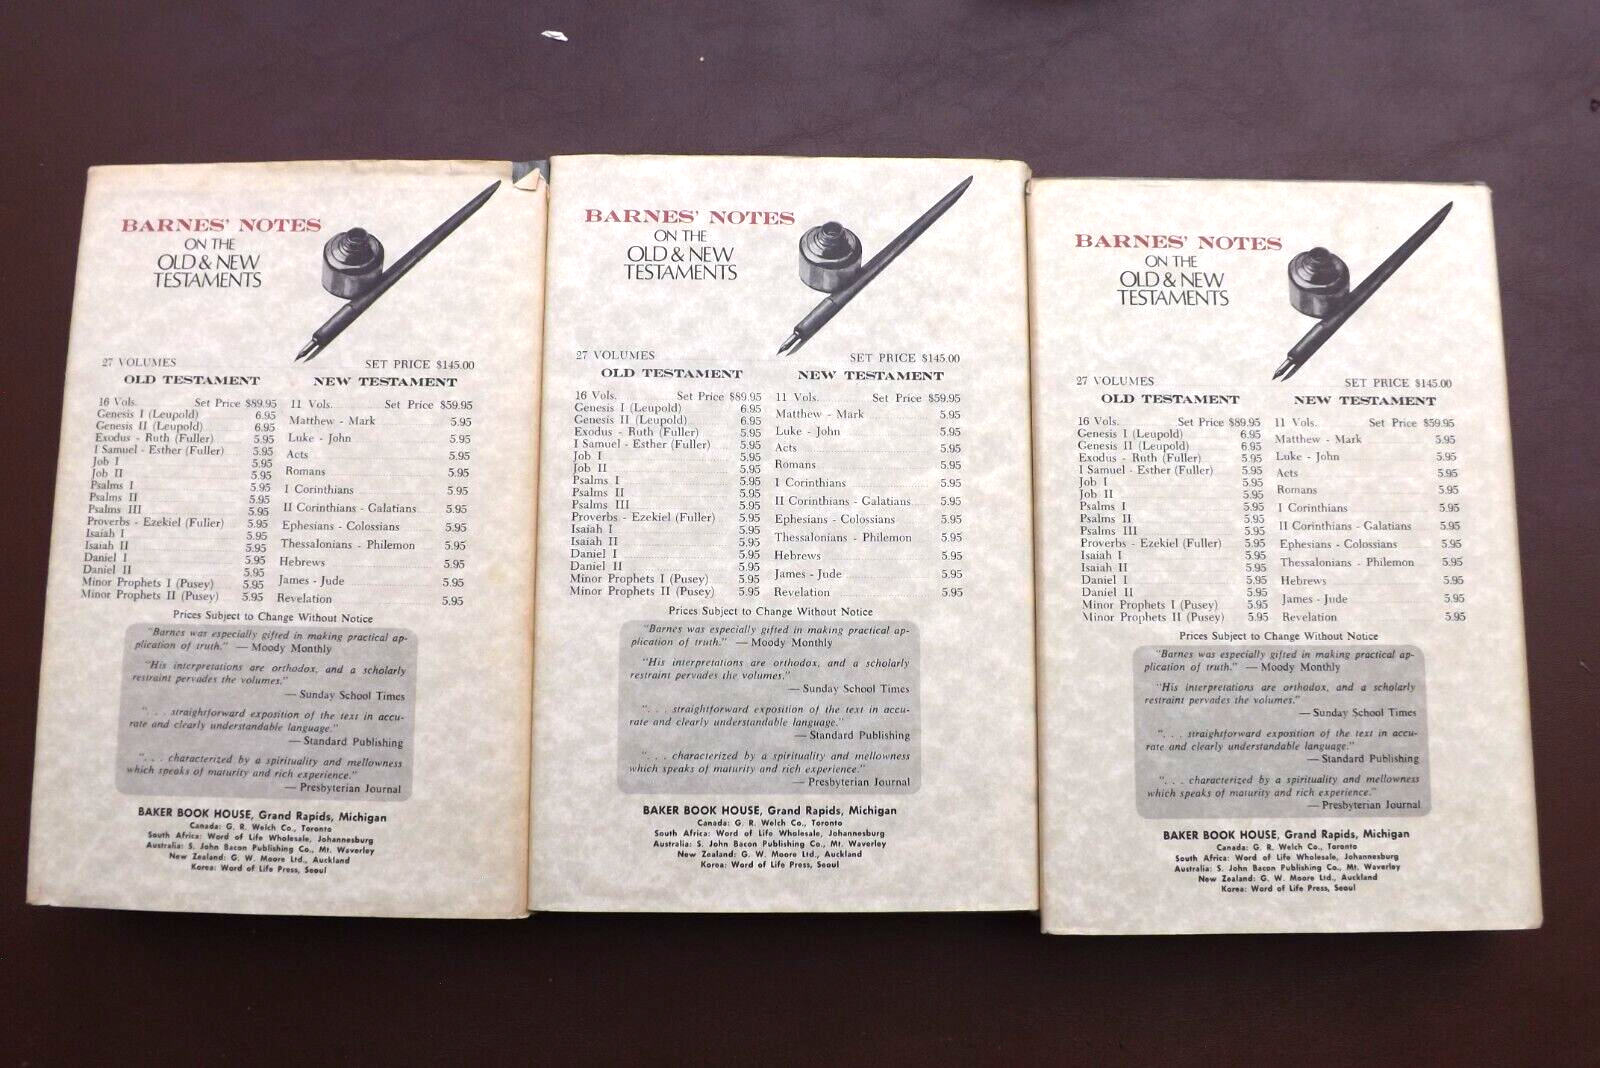 BARNES' NOTES
ON THE
OLD & NEW
TESTAMENTS
27 VOLUMES SET PRICE $145.00
OLD TESTAMENT
16 Vols. Set Price $89.95
Genesis I (Leupold) 6.95
Genesis II (Leupold) 6.95
Exodus - Ruth (Fuller) 5.95
I Samuel - Esther (Fuller) 5.95
Job I 5.95
Job II 5.95
Psalms I 5.95
Psalms II 5.95
Psalms III 5.95
Proverbs - Ezekiel (Fuller) 5.95
Isaiah I 5.95
Isaiah II 5.95
Daniel I 5.95
Daniel II 5.95
Minor Prophets I (Pusey) 5.95
Minor Prophets II (Pusey) 5.95
NEW TESTAMENT
11 Vols. Set Price $59.95
Matthew - Mark 5.95
Luke - John 5.95
Acts 5.95
Romans 5.95
I Corinthians 5.95
II Corinthians - Galatians 5.95
Ephesians - Colossians 5.95
Thessalonians - Philemon 5.95
Hebrews 5.95
James - Jude 5.95
Revelation 5.95
Prices Subject to Change Without Notice
"Barnes was especially gifted in making practical ap-
plication of truth." — Moody Monthly
"His interpretations are orthodox, and a scholarly
restraint pervades the volumes."
— Sunday School Times
". . . straightforward exposition of the text in accu-
rate and clearly understandable language."
— Standard Publishing
". . . characterized by a spirituality and mellowness
which speaks of maturity and rich experience."
— Presbyterian Journal
BAKER BOOK HOUSE, Grand Rapids, Michigan
Canada: G. R. Welch Co., Toronto
South Africa: Word of Life Wholesale, Johannesburg
Australia: S. John Bacon Publishing Co., Mt. Waverley
New Zealand: G. W. Moore Ltd., Auckland
Korea: Word of Life Press, Seoul
BARNES' NOTES
ON THE
OLD & NEW
TESTAMENTS
27 VOLUMES SET PRICE $145.00
OLD TESTAMENT
16 Vols. Set Price $89.95
Genesis I (Leupold) 6.95
Genesis II (Leupold) 6.95
Exodus - Ruth (Fuller) 5.95
I Samuel - Esther (Fuller) 5.95
Job I 5.95
Job II 5.95
Psalms I 5.95
Psalms II 5.95
Psalms III 5.95
Proverbs - Ezekiel (Fuller) 5.95
Isaiah I 5.95
Isaiah II 5.95
Daniel I 5.95
Daniel II 5.95
Minor Prophets I (Pusey) 5.95
Minor Prophets II (Pusey) 5.95
NEW TESTAMENT
11 Vols. Set Price $59.95
Matthew - Mark 5.95
Luke - John 5.95
Acts 5.95
Romans 5.95
I Corinthians 5.95
II Corinthians - Galatians 5.95
Ephesians - Colossians 5.95
Thessalonians - Philemon 5.95
Hebrews 5.95
James - Jude 5.95
Revelation 5.95
Prices Subject to Change Without Notice
"Barnes was especially gifted in making practical ap-
plication of truth." — Moody Monthly
"His interpretations are orthodox, and a scholarly
restraint pervades the volumes."
— Sunday School Times
". . . straightforward exposition of the text in accu-
rate and clearly understandable language."
— Standard Publishing
". . . characterized by a spirituality and mellowness
which speaks of maturity and rich experience."
— Presbyterian Journal
BAKER BOOK HOUSE, Grand Rapids, Michigan
Canada: G. R. Welch Co., Toronto
South Africa: Word of Life Wholesale, Johannesburg
Australia: S. John Bacon Publishing Co., Mt. Waverley
New Zealand: G. W. Moore Ltd., Auckland
Korea: Word of Life Press, Seoul
BARNES' NOTES
ON THE
OLD & NEW
TESTAMENTS
27 VOLUMES SET PRICE $145.00
OLD TESTAMENT
16 Vols. Set Price $89.95
Genesis I (Leupold) 6.95
Genesis II (Leupold) 6.95
Exodus - Ruth (Fuller) 5.95
I Samuel - Esther (Fuller) 5.95
Job I 5.95
Job II 5.95
Psalms I 5.95
Psalms II 5.95
Psalms III 5.95
Proverbs - Ezekiel (Fuller) 5.95
Isaiah I 5.95
Isaiah II 5.95
Daniel I 5.95
Daniel II 5.95
Minor Prophets I (Pusey) 5.95
Minor Prophets II (Pusey) 5.95
NEW TESTAMENT
11 Vols. Set Price $59.95
Matthew - Mark 5.95
Luke - John 5.95
Acts 5.95
Romans 5.95
I Corinthians 5.95
II Corinthians - Galatians 5.95
Ephesians - Colossians 5.95
Thessalonians - Philemon 5.95
Hebrews 5.95
James - Jude 5.95
Revelation 5.95
Prices Subject to Change Without Notice
"Barnes was especially gifted in making practical ap-
plication of truth." — Moody Monthly
"His interpretations are orthodox, and a scholarly
restraint pervades the volumes."
— Sunday School Times
". . . straightforward exposition of the text in accu-
rate and clearly understandable language."
— Standard Publishing
". . . characterized by a spirituality and mellowness
which speaks of maturity and rich experience."
— Presbyterian Journal
BAKER BOOK HOUSE, Grand Rapids, Michigan
Canada: G. R. Welch Co., Toronto
South Africa: Word of Life Wholesale, Johannesburg
Australia: S. John Bacon Publishing Co., Mt. Waverley
New Zealand: G. W. Moore Ltd., Auckland
Korea: Word of Life Press, Seoul